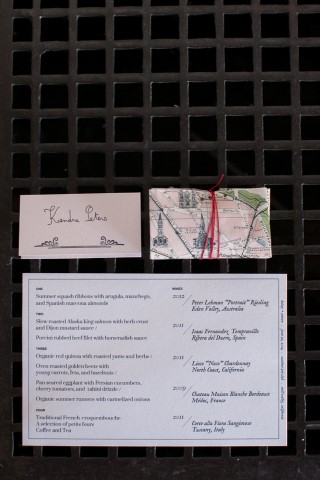 Kendra Peters
ONE
Summer squash ribbons with arugula, manchego,
and Spanish marcona almonds
TWO
Slow roasted Alaska king salmon with herb crust
and Dijon mustard sauce /
Porcini rubbed beef filet with horseradish sauce
THREE
Organic red quinoa with roasted yams and herbs /
Oven roasted golden beets with
young carrots, feta, and hazelnuts /
Pan seared eggplant with Persian cucumbers,
cherry tomatoes, and tahini drizzle /
Organic summer runners with carmelized onions
FOUR
Traditional French croquembouche
A selection of petits fours
Coffee and Tea
WINES
2012 / Peter Lehman "Portrait" Riesling
Eden Valley, Australia
2011 / Isaac Fernandez, Tempranillo
Ribera del Duero, Spain
2011 / Liese "Nose" Chardonnay
North Coast, California
2009 / Chateau Maison Blanche Bordeaux
Médoc, France
2011 / Sangiovese
Tuscany, Italy